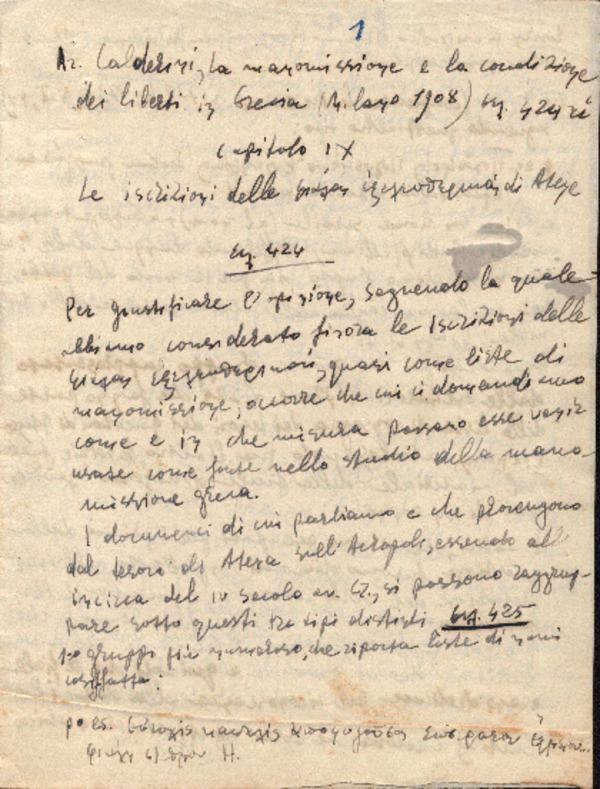 1
Ar. Calderini, La manomissione e la condizione
dei liberti in Grecia (Milano 1908) 424
Capitolo IX
Le iscrizioni delle φιάλαι ἐξελευθερικαί di Atene
424
Per giustificare l'opinione, seguendo la quale
abbiamo considerato finora le Iscrizioni delle
φιάλαι ἐξελευθερικαί, quasi come liste di
manomissione, occorre che ci domandiamo
come e in che misura possano esse venir
usate come fonte nello studio della mano-
missione greca.
I documenti di cui parliamo e che provengono
dal tesoro di Atena sull'Acropoli, essendo all'
incirca del IV secolo av. C., si possono raggrup-
pare sotto questi tre tipi distinti 425
1º gruppo più numeroso, che riporta liste di nomi
cosiffatta:
p. es.
H.